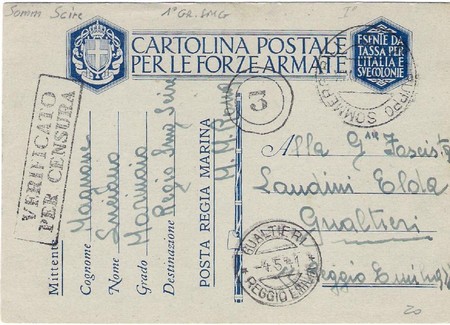 Somm Scire
1° GR. SMG
I°
CARTOLINA POSTALE
PER LE FORZE ARMATE
ESENTE DA
TASSA PER
L'ITALIA E
SUE COLONIE
VERIFICATO
PER CENSURA
3
GRUPPO SOMMERG
Mittente:
Cognome Magnone
Nome Luciano
Grado Marinaio
Destinazione Regio Smg Scire
POSTA REGIA MARINA
M.M. Roma
Alla G
Landini Elda
Gualtieri
Reggio Emilia
GUALTIERI
-4.5.41
* REGGIO EMILIA *
20